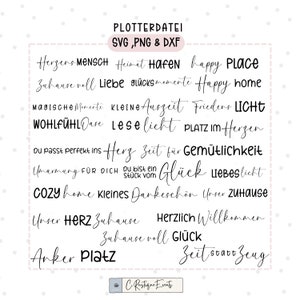 PLOTTERDATEI
SVG ,PNG & DXF
Herzens MENSCH Heimat HAFEN happy PLACE
Zuhause voll Liebe GLÜCKSmomente Happy home
MAGISCHE Momente KLEINE Auszeit Friedens LICHT
WOHLFÜHL Oase LESElicht PLATZ IM Herzen
DU PASST PERFEKT INS Herz Zeit für Gemütlichkeit
Umarmung FÜR DICH DU BIST EIN STÜCK VOM Glück LIEBESlicht
COZY home KLEINES Dankeschön Unser ZUHAUSE
Unser HERZ Zuhause HERZLICH Willkommen
Zuhause voll GLÜCK
Anker PLATZ Zeit STATT Zeug